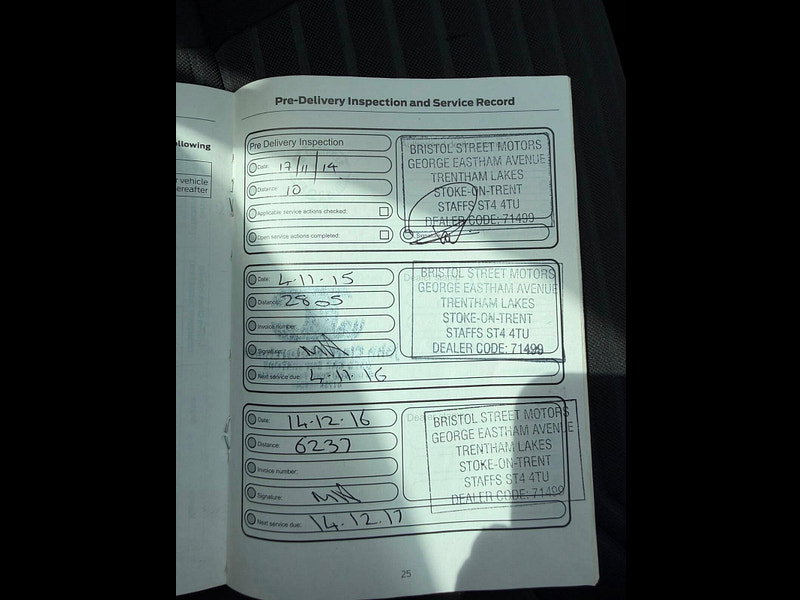 ollowing
r vehicle
ereafter
Pre-Delivery Inspection and Service Record
Pre Delivery Inspection
Date: 17/11/14
Distance: 10
Applicable service actions checked:
Open service actions completed:
BRISTOL STREET MOTORS
GEORGE EASTHAM AVENUE
TRENTHAM LAKES
STOKE-ON-TRENT
STAFFS ST4 4TU
DEALER CODE: 71499
Date: 4.11.15
Distance: 2805
Invoice number:
Signature:
Next service due: 4.11.16
BRISTOL STREET MOTORS
GEORGE EASTHAM AVENUE
TRENTHAM LAKES
STOKE-ON-TRENT
STAFFS ST4 4TU
DEALER CODE: 71499
Date: 14.12.16
Distance: 6237
Invoice number:
Signature:
Next service due: 14.12.17
BRISTOL STREET MOTORS
GEORGE EASTHAM AVENUE
TRENTHAM LAKES
STOKE-ON-TRENT
STAFFS ST4 4TU
DEALER CODE: 71499
25